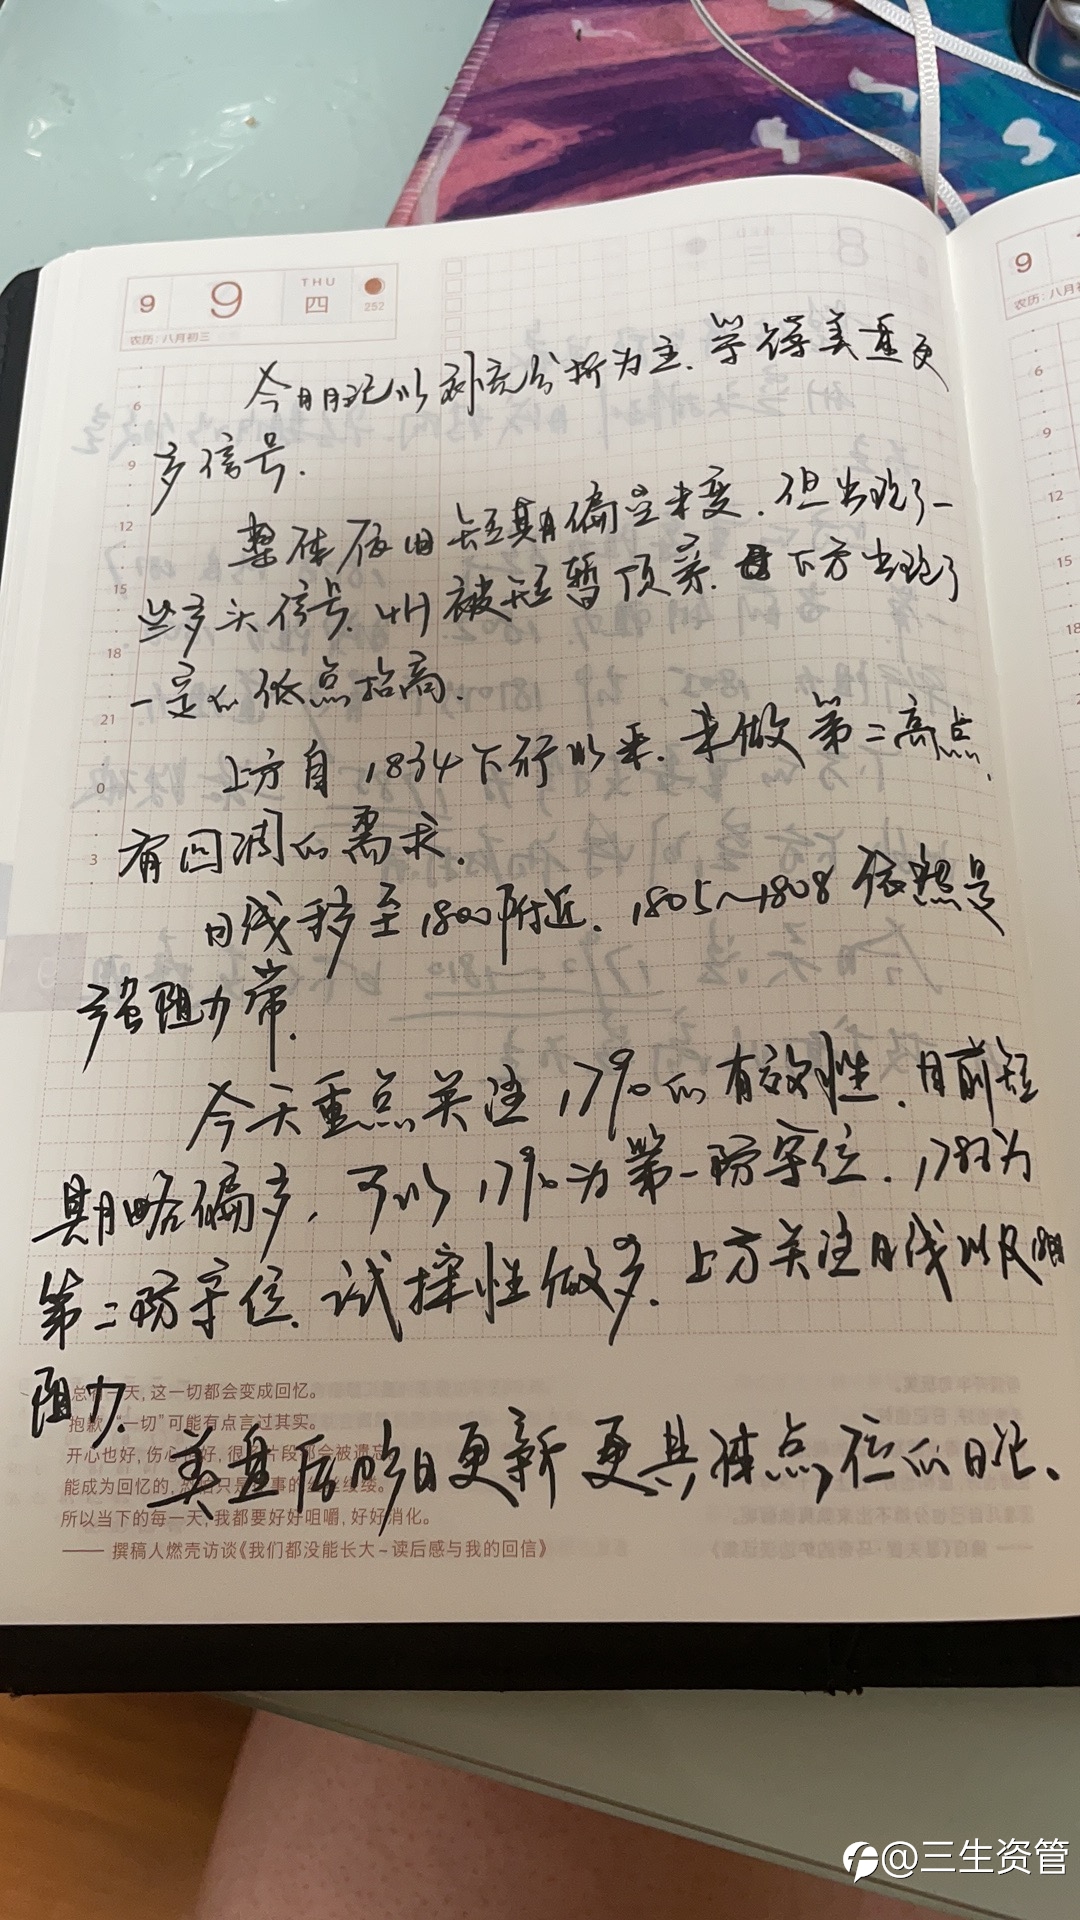 9 9 THU 四 252
农历:八月初三
8
9
农历:八月初
6
9
12
15
18
21
0
3
6
9
12
15
18
今日日记以补充分析为主.等待美盘更
多信号.
整体依旧短期偏空未变.但出现了一
些多头信号.4H被短暂顶亲.且下方出现了
一定的低点抬高.
上方自1834下行以来.未做第二高点,
有回调的需求.
日线移至1800附近.1805~1808依然是
强阻力带.
今天重点关注1790的有效性.目前短
期略偏多,可以1790为第一防守位.为
第二防守位.试探性做多.上方关注日线以及
阻力.
美盘后哈日更新更具体点位的日记.
总有一天,这一切都会变成回忆。
抱歉,“一切”可能有点言过其实。
开心也好,伤心也好,很多片段都会被遗忘
能成为回忆的,恐怕只是故事的丝丝缕缕。
所以当下的每一天,我都要好好咀嚼,好好消化。
—— 撰稿人燃壳访谈《我们都没能长大-读后感与我的回信》
@三生资管